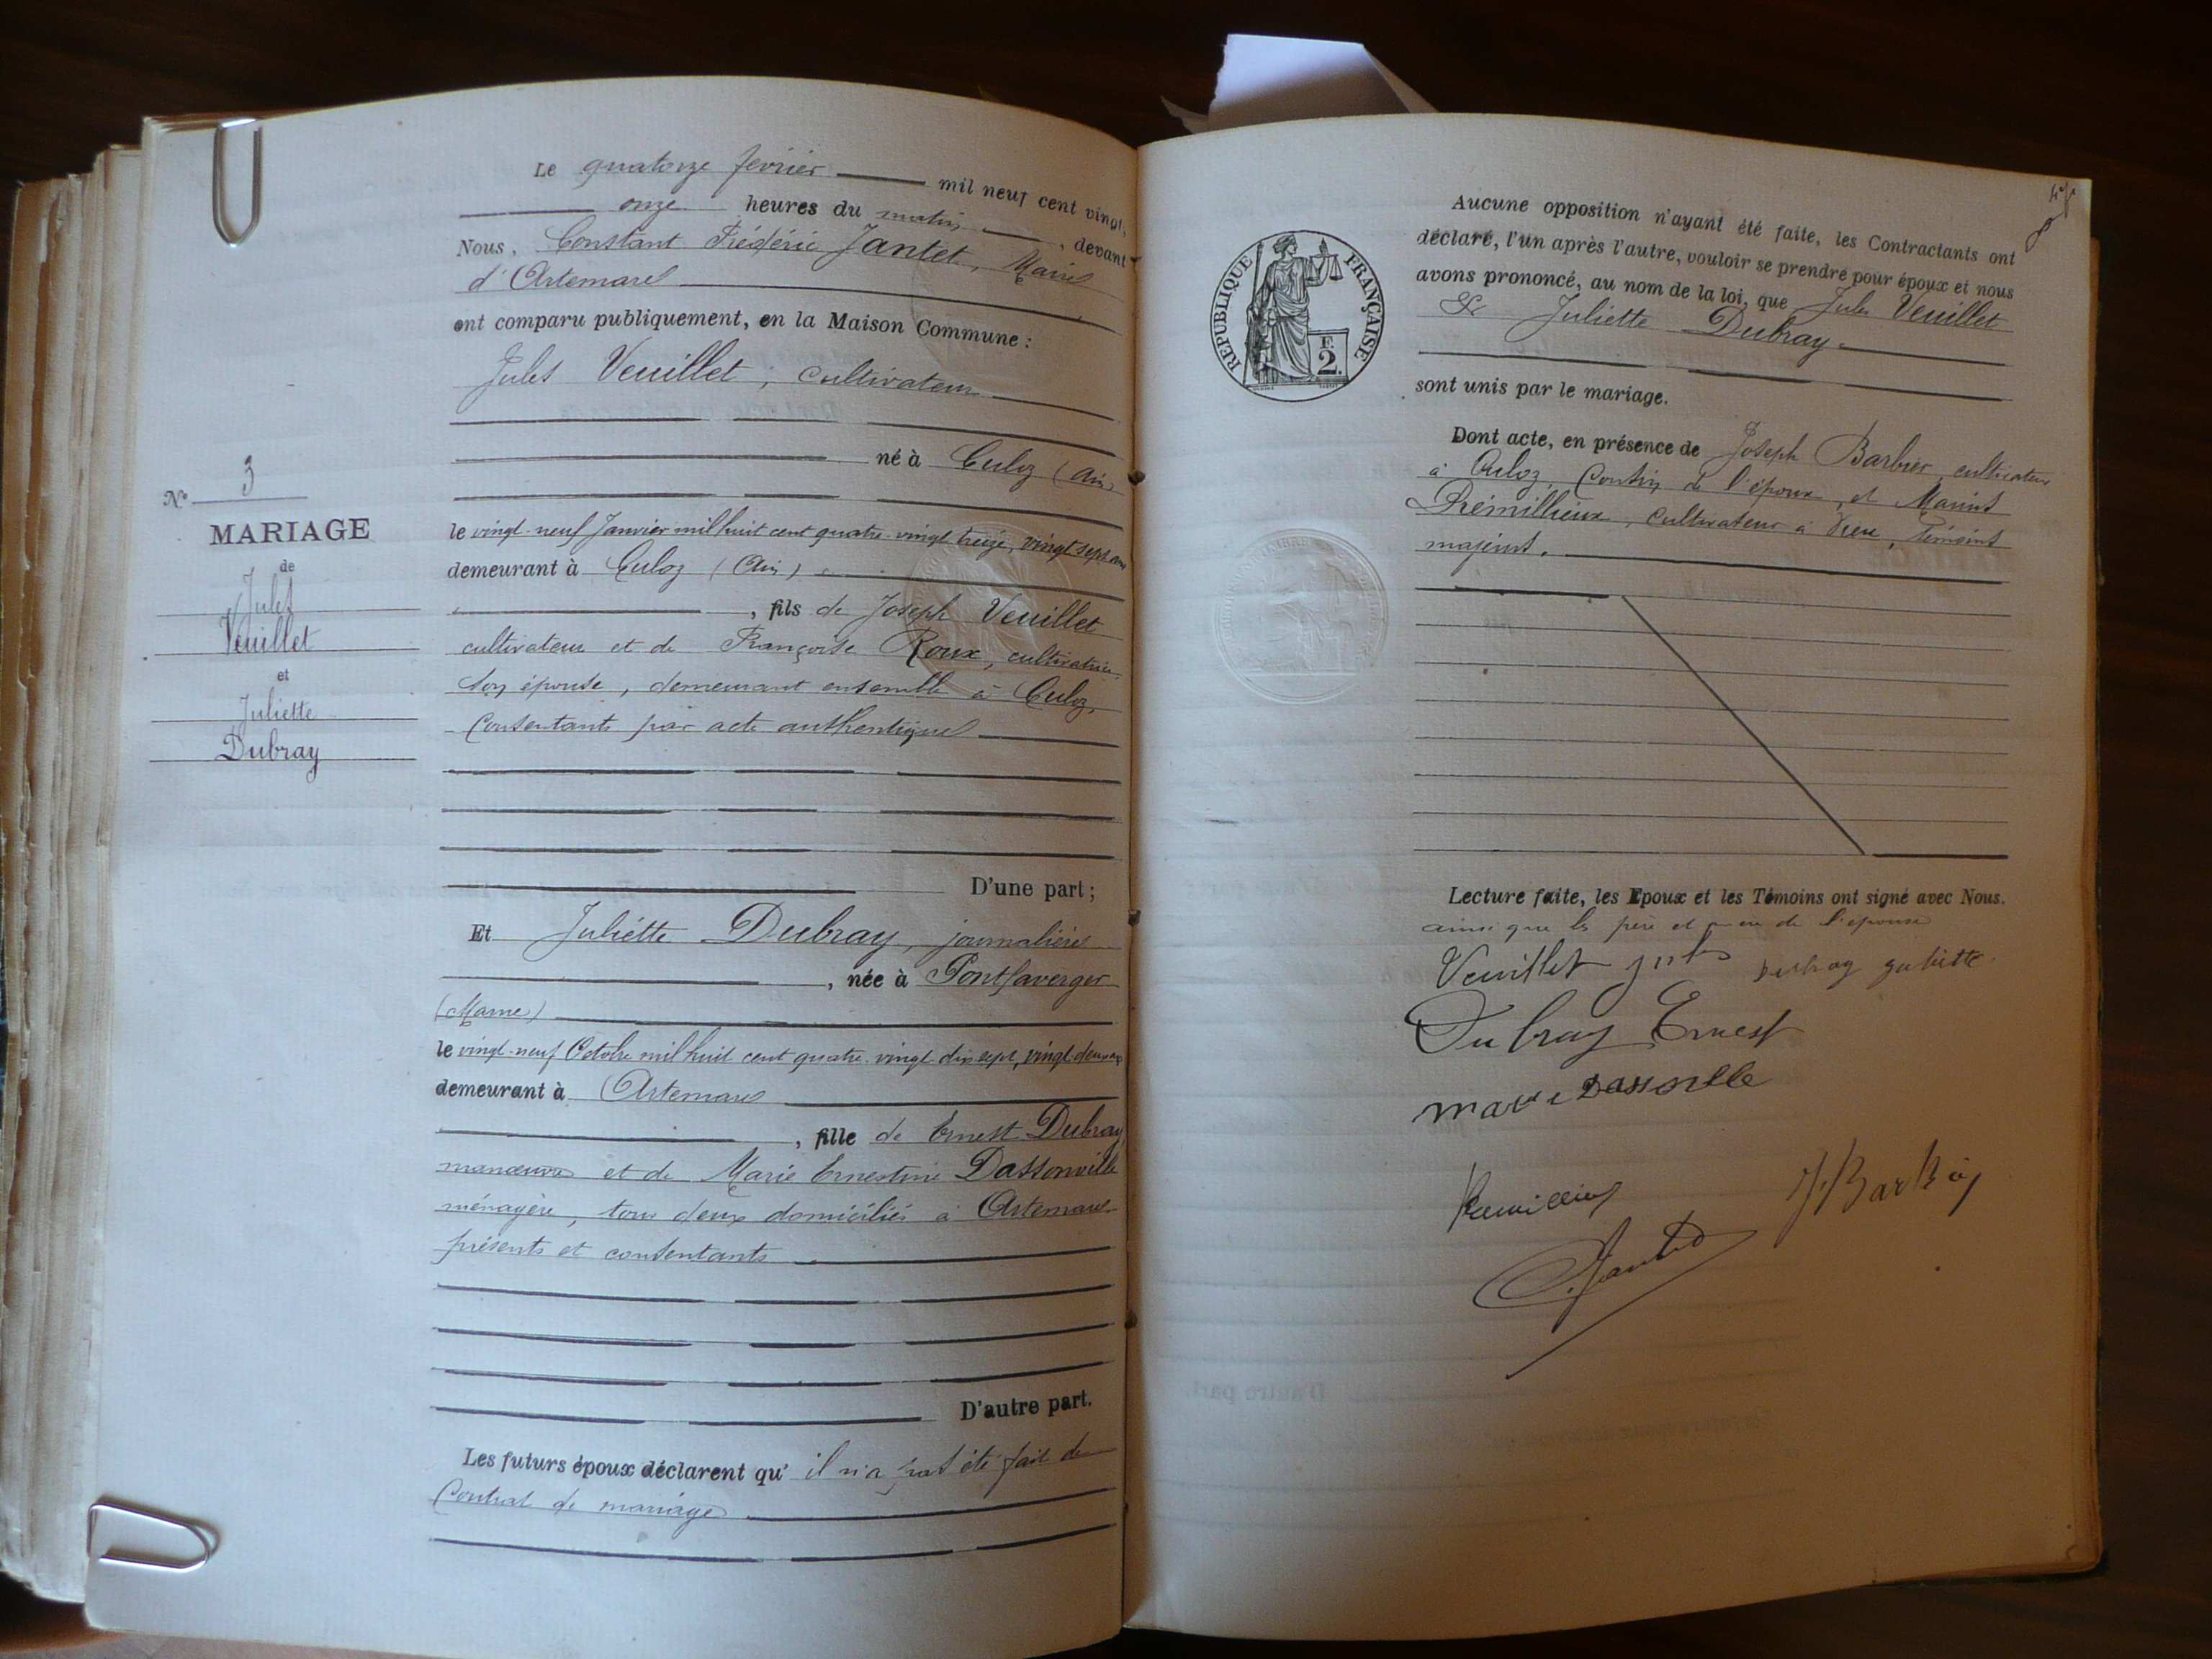 Le quatorze février mil neuf cent vingt,
onze heures du matin, devant
Nous, Constant Frédéric Jantet, Maire
d'Artemare
ont comparu publiquement, en la Maison Commune :
Jules Veuillet, cultivateur
né à Culoz (Ain)
le vingt-neuf Janvier mil huit cent quatre-vingt treize, vingt sept ans
demeurant à Culoz (Ain)
, fils de Joseph Veuillet
cultivateur et de Françoise Roux, cultivatrice,
son épouse, demeurant ensemble à Culoz,
Consentants par acte authentique
D'une part ;
Et Juliette Dubray, journalière
, née à Pontfaverger
(Marne)
le vingt-neuf Octobre mil huit cent quatre-vingt dix sept, vingt deux ans
demeurant à Artemare
, fille de Ernest Dubray
manœuvre et de Marie Ernestine Dassonville
ménagère, tous deux domiciliés à Artemare
présents et consentants
D'autre part.
Les futurs époux déclarent qu' il n'a pas été fait de
Contrat de mariage
N° 3
MARIAGE
de
Jules
Veuillet
et
Juliette
Dubray
8
REPUBLIQUE FRANÇAISE
F.
2.
Aucune opposition n'ayant été faite, les Contractants ont
déclaré, l'un après l'autre, vouloir se prendre pour époux et nous
avons prononcé, au nom de la loi, que Jules Veuillet
& Juliette Dubray
sont unis par le mariage.
Dont acte, en présence de Joseph Barbier, cultivateur
à Culoz, Cousin de l'époux, et Marius
Prémillieux, cultivateur à Vieu, Témoins
majeurs.
Lecture faite, les Epoux et les Témoins ont signé avec Nous.
ainsi que les père et mère de l'épouse
Veuillet Jules Dubray Juliette
Dubray Ernest
Marie Dassonville
J Barbier
Jantet